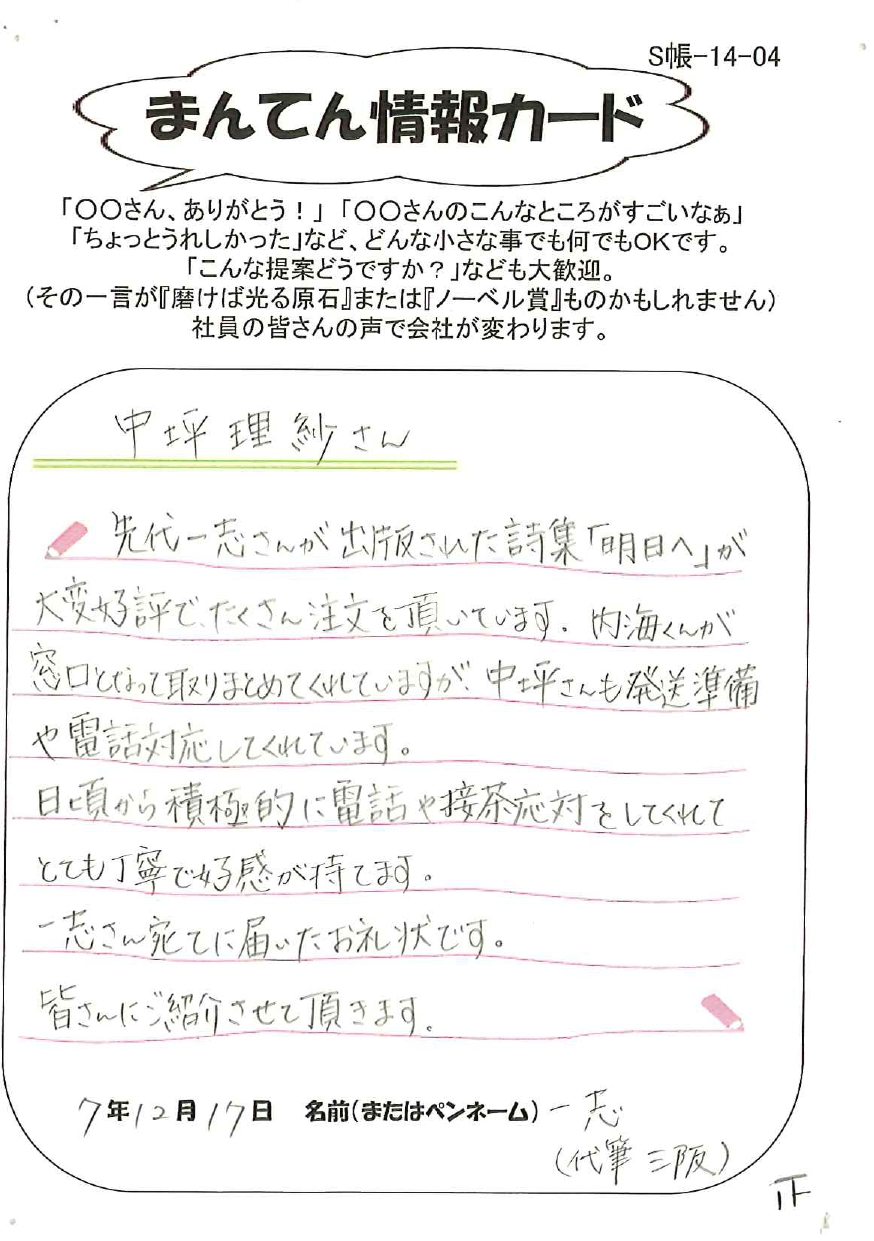 S帳-14-04
まんてん情報カード
「〇〇さん、ありがとう！」「〇〇さんのこんなところがすごいなぁ」
「ちょっとうれしかった」など、どんな小さな事でも何でもOKです。
「こんな提案どうですか？」なども大歓迎。
(その一言が『磨けば光る原石』または『ノーベル賞』ものかもしれません)
社員の皆さんの声で会社が変わります。
中坪理紗さん
先代一志さんが出版された詩集「明日へ」が
大変好評で、たくさん注文を頂いています。内海くんが
窓口となって取りまとめてくれていますが、中坪さんも発送準備
や電話対応してくれています。
日頃から積極的に電話や接茶応対をしてくれて
とても丁寧で好感が持てます。
一志さん宛てに届いたお礼状です。
皆さんにご紹介させて頂きます。
7年12月17日 名前(またはペンネーム) 一志
(代筆 三阪)